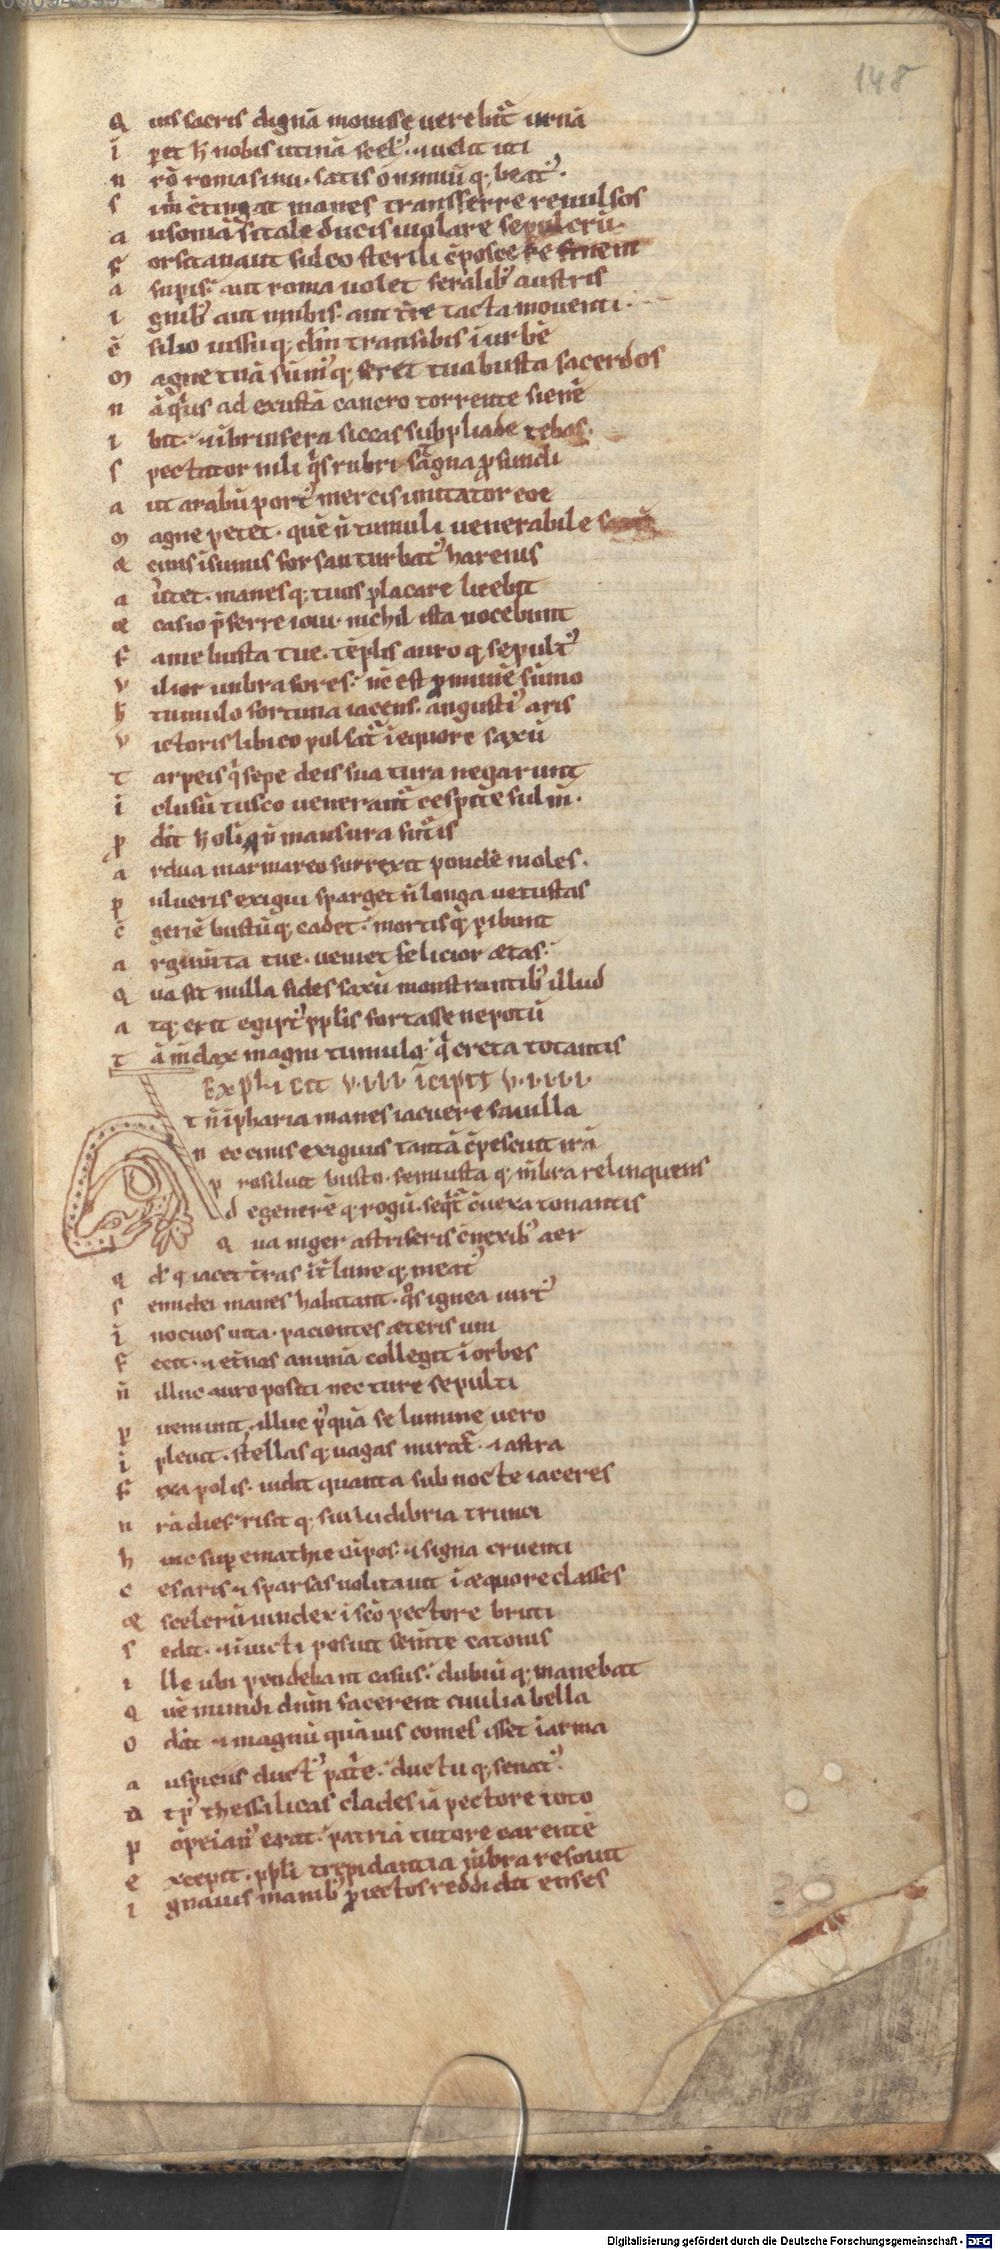 148
Q uis sacris dignā mouisse uerebit᷑ urnā
i ꝑet ħ nobis utinā scel᷒ · ⁊ uelit uti
n rō roma sinu · satis o nimiū q; beat᷒ ·
s im̄ ctīngat manes transferre reuulsos
a usoniā si tale ducis uiolare sepulcrū ·
F orsitan aut sulco sterili cp̄oscere finem
a suꝑis · aut roma uolet feralib᷒ austris
i gnib᷒ aut nimiis · aut tr̄e tecta mouenti ·
c̄ silio iussuq; dm̄ transibis ī urbē
m agne tuā sūm᷒ q; feret tua busta sacerdos
n ā q͛s ad exustā cancro torrente sienē
i bit · ⁊ ībrifera siccas sub pliade tebas ·
s pectator nili q͛s rubri stāgna ꝓfundi
a ut arabū port᷒ mercis mutator eoe
m agne petet · quē n̄ tumuli uenerabile
æ cinis ī sumis forsan turbat᷒ harenis
a u͛tet · manesq; tuos placare iuebit
æ casio p̄ferre ioui · nichil ista nocebunt
F ame busta tue · tēplis auro q; sepult᷒
v ilior umbra fores · nc̄ est ꝓ numīe sūmo
ħ tumulo fortuna iacens · angusti᷒ aris
v ictoris libico pulsat᷑ ī equore saxū
T arpeis q͛ sepe deis sua tura negarunt
i clusū tusco uenerant᷑ cespite fulm̄ ·
ꝓ dit ħ oli q; n̄ mansura futͣis
a rdua marmoreo surrexit pondē moles ·
p ulueris exigui sparget n̄ longa uetustas
c̄ geriē bustūq; cadet · mortisq; ꝑibunt
a rgum̄ta tue · ueniet felicior ætas ·
Q ua sit nulla fides saxū monstrantib᷒ illud
a tq; erit egipt᷒ pp̄lis fortasse nepotū
t ā m̄dax magni tumulo · q͛ creta tonantis
Explicit v·iii· īcipit v·i·iii·
A t n̄ ī pharia manes iacuere fauilla
n ec cinis exiguus tantā cp̄escuit irā
p rosiluit busto · semiusta q; m̄bra relinquens
d egenerē q; rogū · seqͥt᷑ cuexa tonantis
Q ua niger astriferis cn̄exib᷒ aer
q d͛ q; iacet t͛ras īt͛ lune q; meat᷒
s emidei manes habitant · qͦs ignea uirt᷒
i nocuos uita · pacientes æteris imi
F ecit · ⁊ et͛nas animā collegit ī orbes
n̄ illuc auro positi nec ture sepulti
p ueniunt · illuc p᷒quā se lumine uero
i pleuit · stellas q; uagas mirat᷑ · ⁊ astra
F ixa polis · uidit quanta sub nocte iaceres
n rā dies · risit q; sui ludibria trunci
h inc suꝑ emathie cāpos · ⁊ signa cruenti
c esaris · ⁊ sparsas uolitauit ī æquore classes
æ scelerū uindex ī scō pectore bruti
s edit · ⁊ īuicti posuit se m̄te catonis
i lle ubi pendebant casus · dubiū q; manebat
q uē mundi dnm̄ facerent ciuilia bella
o d͛at ⁊ magnū quāuis comes isset ī arma
a uspiciis duct᷒ pat͛e · ductu q; senat᷒ ·
a t p᷒ thessalicas clades iā pectore toto
p ōpeian᷒ erat · patriā tutore carentē
e xcepit · pp̄li trepidantia m̄bra refouit
i gnauis manib᷒ ꝓiectos reddidit enses
Digitalisierung gefördert durch die Deutsche Forschungsgemeinschaft - DFG